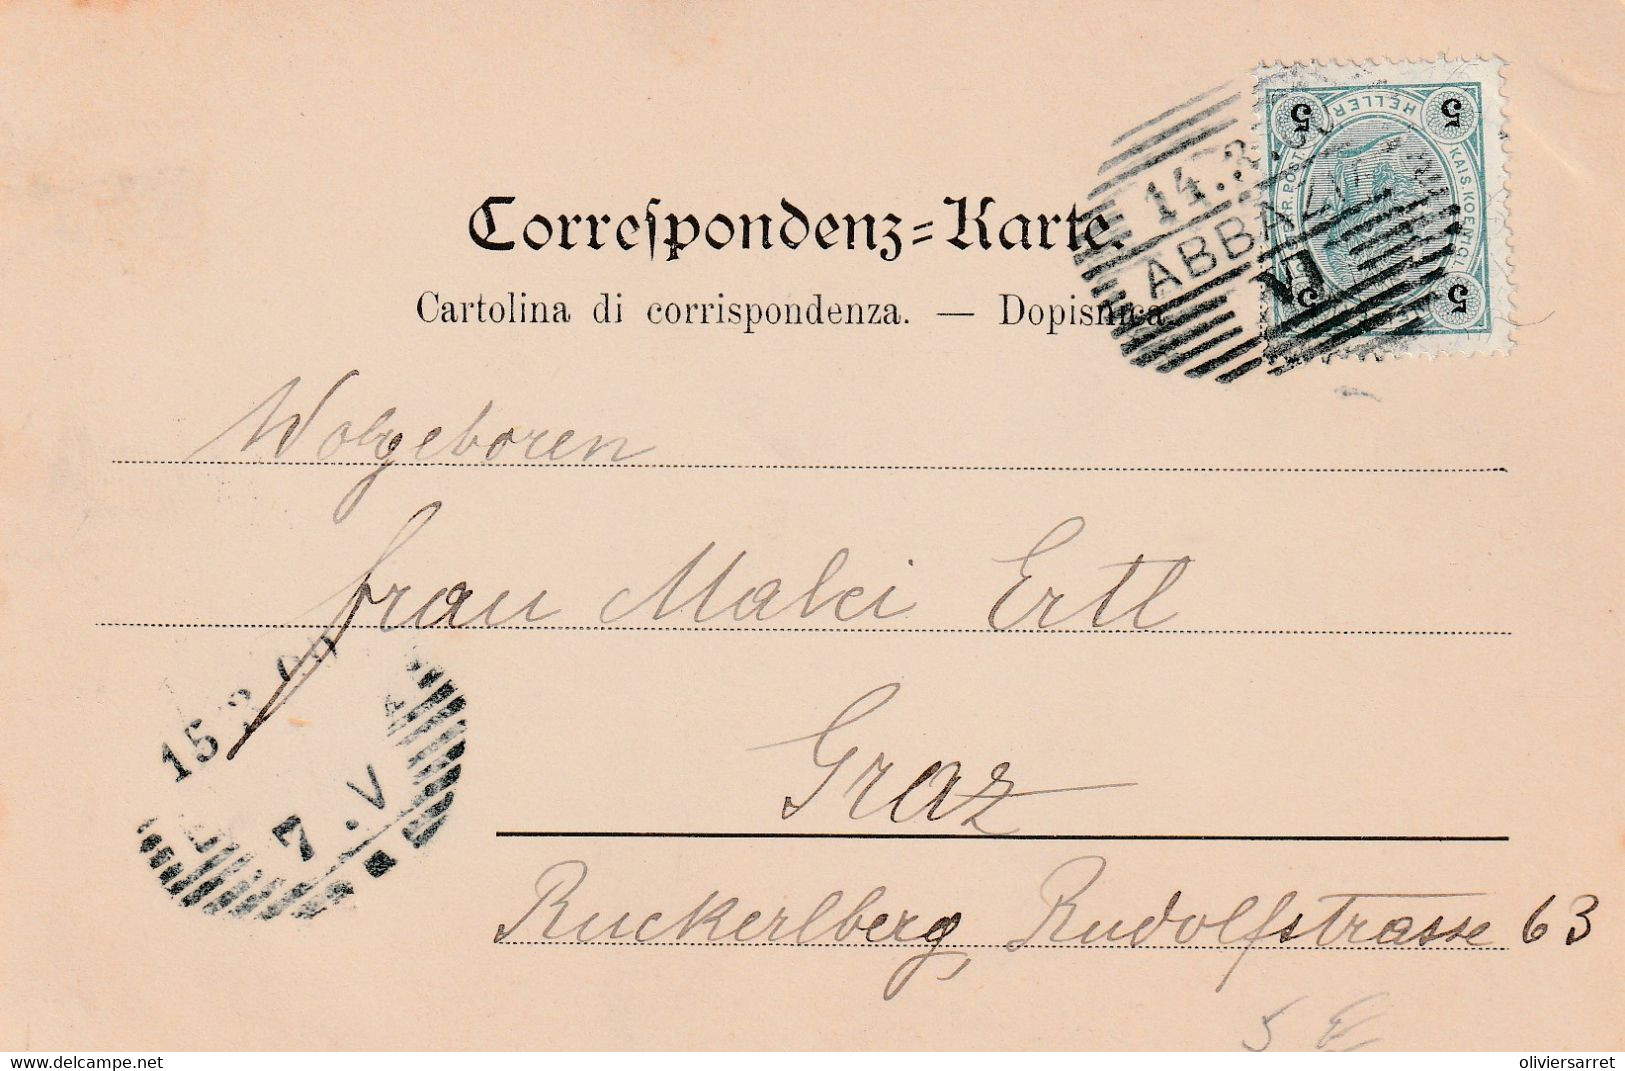 Correspondenz-Karte.
Cartolina di corrispondenza. — Dopisnica.
5 HELLER 5
KAIS. KOENIGL.
5 5
14.3.00
ABBAZIA
Wolgeboren
frau Malci Ertl
Graz
Ruckerlberg, Rudolfstrasse 63
15 3 00
7.V
5 E
Delcampe.net
oliviersarret